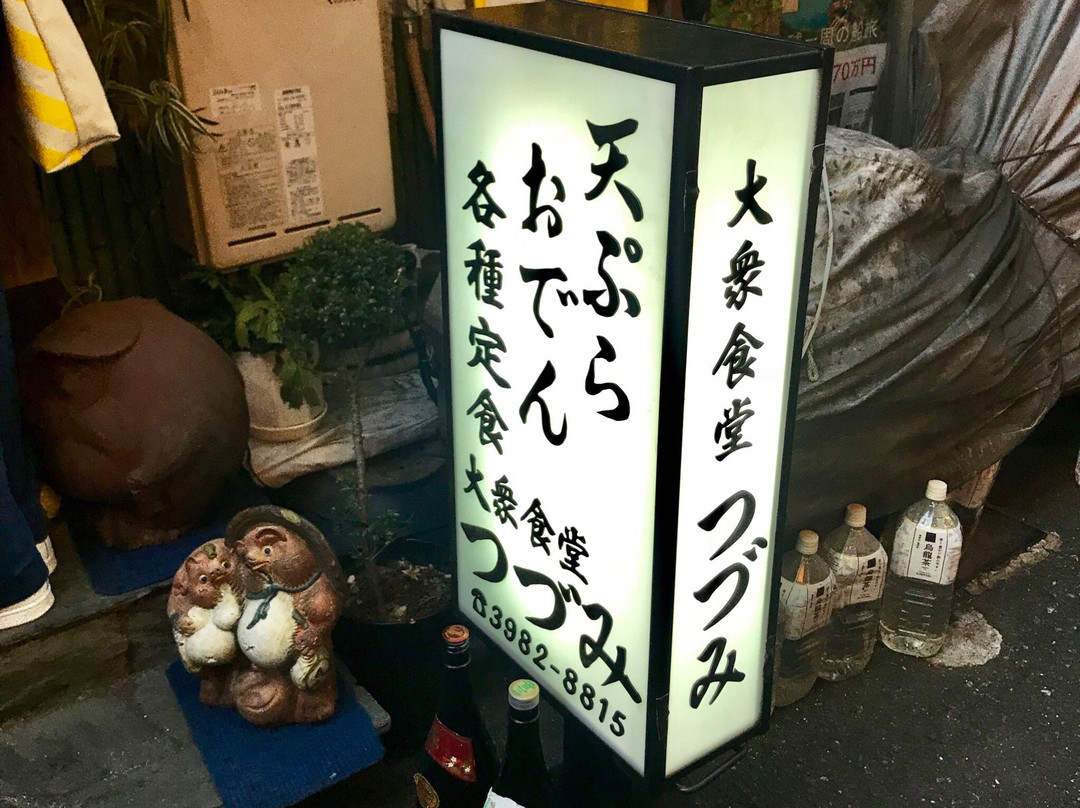 天ぷら
おでん
各種定食
大衆食堂
つづみ
☎3982-8815
大衆食堂 つづみ
烏龍茶
一周の船旅
70万円